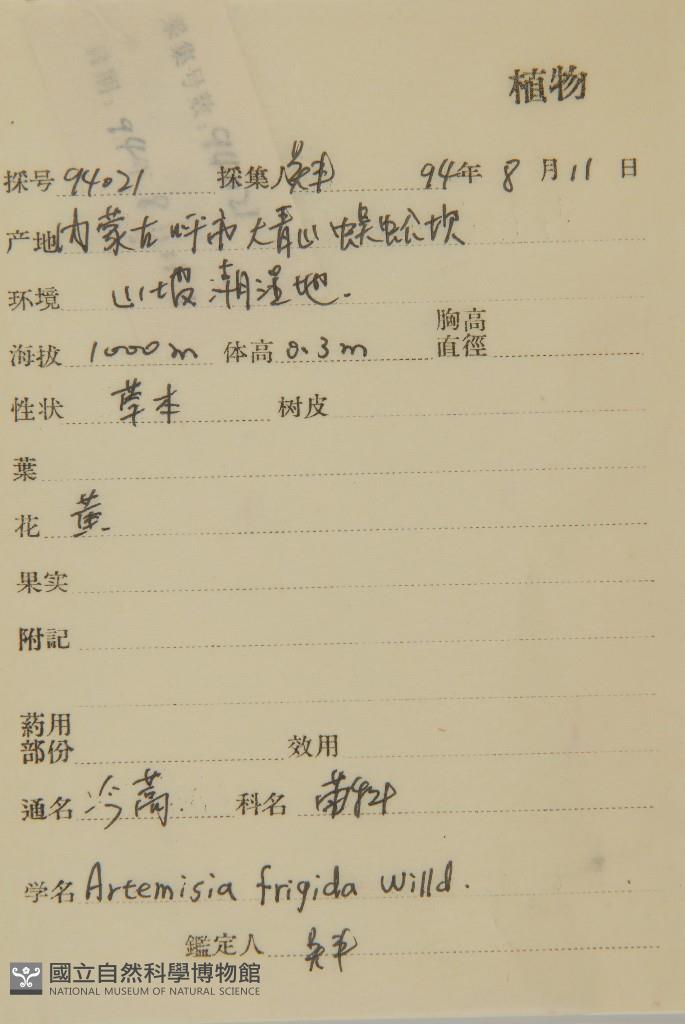 植物
採号 94021 採集人 吴丰 94年 8 月 11 日
产地 内蒙古呼市大青山蜈蚣坝
环境 山坡潮湿地.
海拔 1000m 体高 0.3m 胸高直徑
性状 草本 树皮
葉
花 黄
果实
附記
药用部份 效用
通名 冷蒿. 科名 菊科
学名 Artemisia frigida Willd.
鑑定人
國立自然科學博物館
NATIONAL MUSEUM OF NATURAL SCIENCE